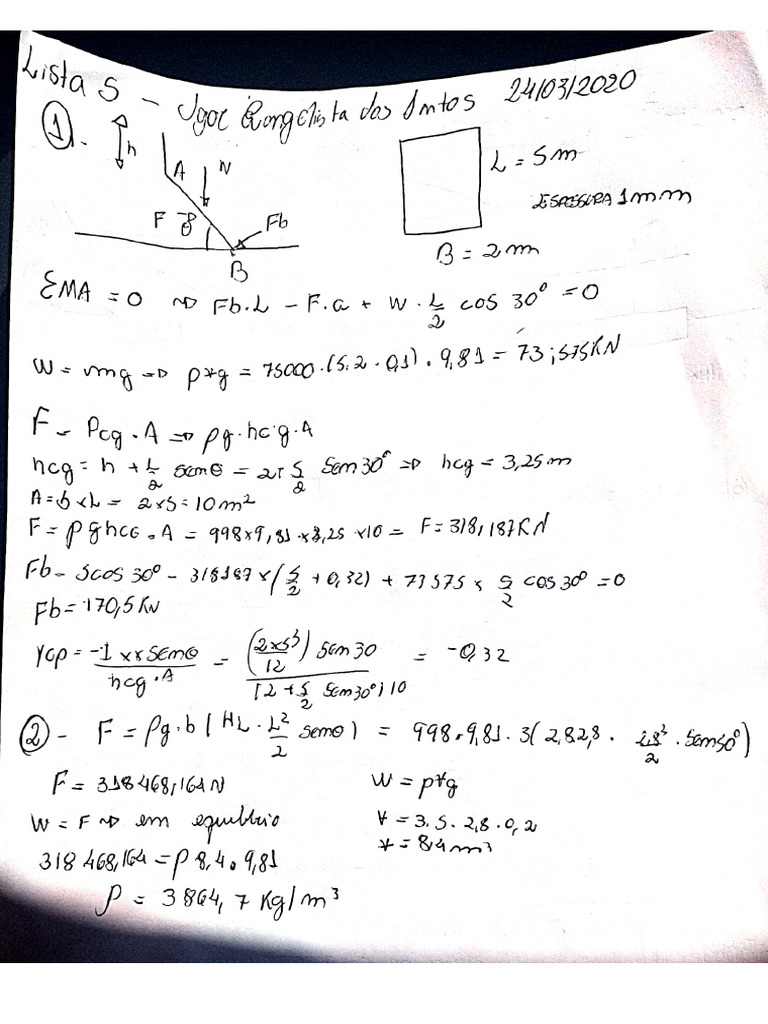 Lista 5 - Igor Evangelista dos Santos 24/03/2020
1.
h
A
N
F
θ
Fb
B
L = 5m
ESPESSURA 1mm
B = 2m
ΣMA = 0 ⇒ Fb.L - F.a + W.L/2 cos 30° = 0
W = mg ⇒ ρ∀g = 75000.(5.2.0,1).9,81 = 73,575KN
F = Pcg.A ⇒ ρg.hcg.A
hcg = h + L/2 senθ = 2+5/2 sen30° ⇒ hcg = 3,25m
A = b×L = 2×5 = 10m²
F = ρghcg.A = 998×9,81×3,25×10 = F = 318,187KN
Fb = 5cos30° - 318187×(5/2 + 0,32) + 73575 × 5/2 cos30° = 0
Fb = 170,5KN
Ycp = -1 ××senθ / hcg.A = (2×5³/12) sen30 / (2+5/2 sen30°)10 = -0,32
2 - F = ρg.b(HL.L²/2 senθ) = 998.9,81.3(2,828. 2,8²/2 .sen50°)
F = 318468,164N
W = ρ∀g
W = F ⇒ em equilíbrio
∀ = 3.5.2,8.0,2
318468,164 = ρ 8,4.9,81
∀ = 8,4m³
ρ = 3864,7 Kg/m³